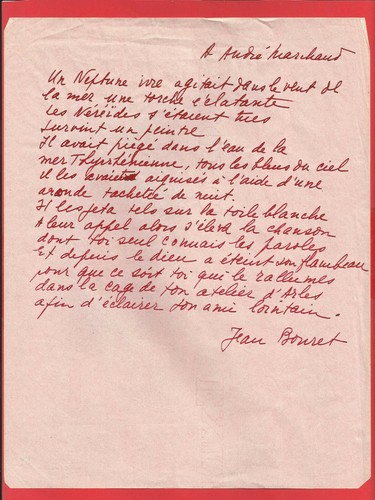 A André Marchand
Un Neptune ivre agitait dans le vent de
la mer une torche éclatante
Les Néréïdes s'étaient tues
Survint un peintre
Il avait piégé dans l'eau de la
mer Thyrrénienne, tous les bleus du ciel
il les avait aiguisés à l'aide d'une
aronde tachetée de nuit.
Il les jeta tels sur la toile blanche
A leur appel alors s'éleva la chanson
dont toi seul connais les paroles
Et depuis le dieu a éteint son flambeau
pour que ce soit toi qui le rallumes
dans la cage de ton atelier d'Arles
afin d'éclairer ton ami lointain.
Jean Bouret